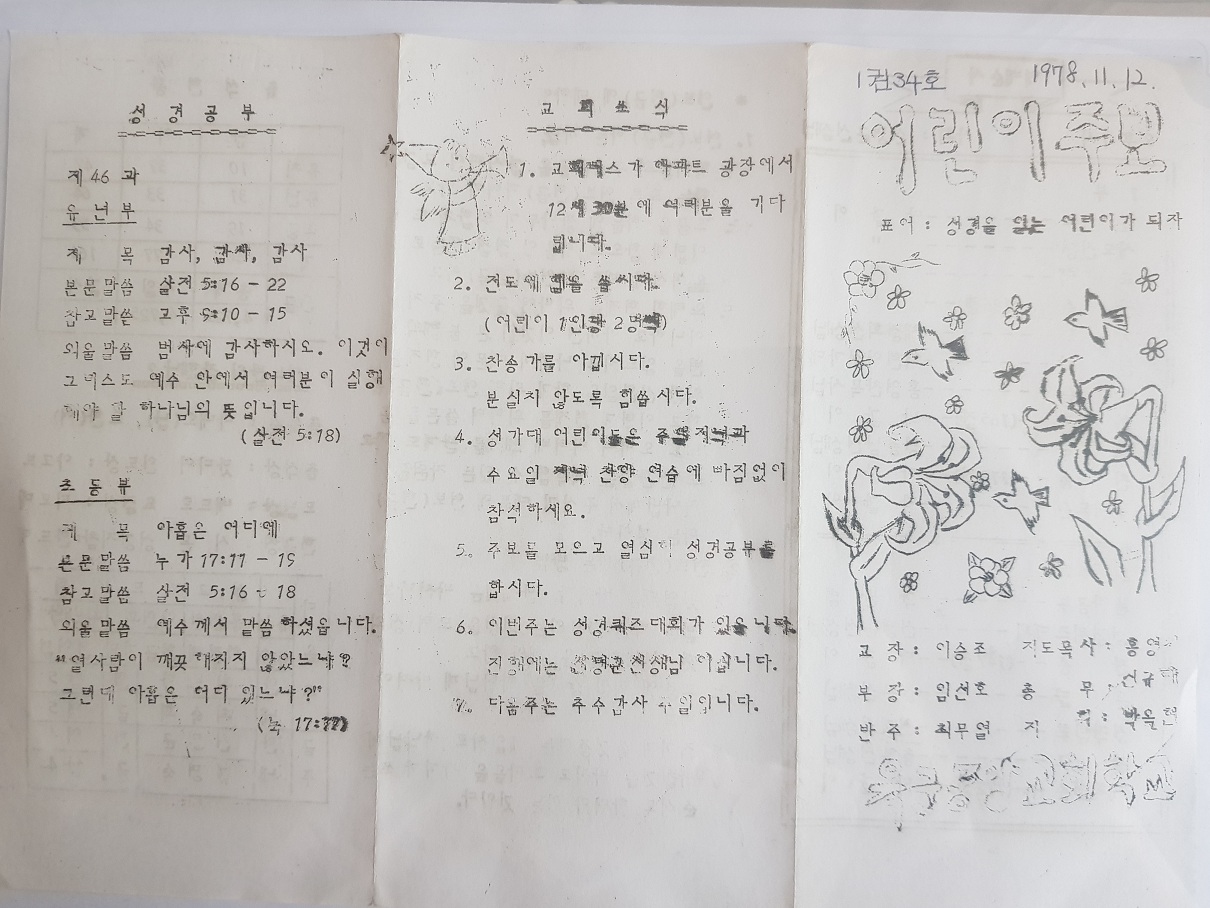 성경공부
제 46 과
유년부
제 목 감사, 감사, 감사
본문말씀 살전 5:16 - 22
참고말씀 고후 9:10 - 15
외울말씀 범사에 감사하시오. 이것이
그리스도 예수 안에서 여러분이 실행
해야 할 하나님의 뜻입니다.
(살전 5:18)
초등부
제 목 아홉은 어디에
본문말씀 누가 17:11 - 19
참고말씀 살전 5:16 - 18
외울말씀 예수께서 말씀하셨읍니다.
"열사람이 깨끗해지지 않았느냐?
그런데 아홉은 어디 있느냐?"
(눅 17:17)
교회소식
1. 교회버스가 아파트 광장에서
12시 30분에 여러분을 기다
립니다.
2. 전도에 힘을 씁시다.
(어린이 1인당 2명씩)
3. 찬송가를 아낍시다.
분실치 않도록 힘씁시다.
4. 성가대 어린이들은 주일저녁과
수요일 저녁 찬양 연습에 빠짐없이
참석하세요.
5. 주보를 모으고 열심히 성경공부를
합시다.
6. 이번주는 성경퀴즈대회가 있읍니다.
진행에는 선생님 이십니다.
7. 다음주는 추수감사 주일입니다.
1권34호 1978.11.12.
어린이주보
표어 : 성경을 읽는 어린이가 되자
교 장 : 이승조 지도목사 : 홍영
부 장 : 임선호 총 무 : 신규
반 주 : 최무열 지 휘 : 박옥현
중앙교회학교